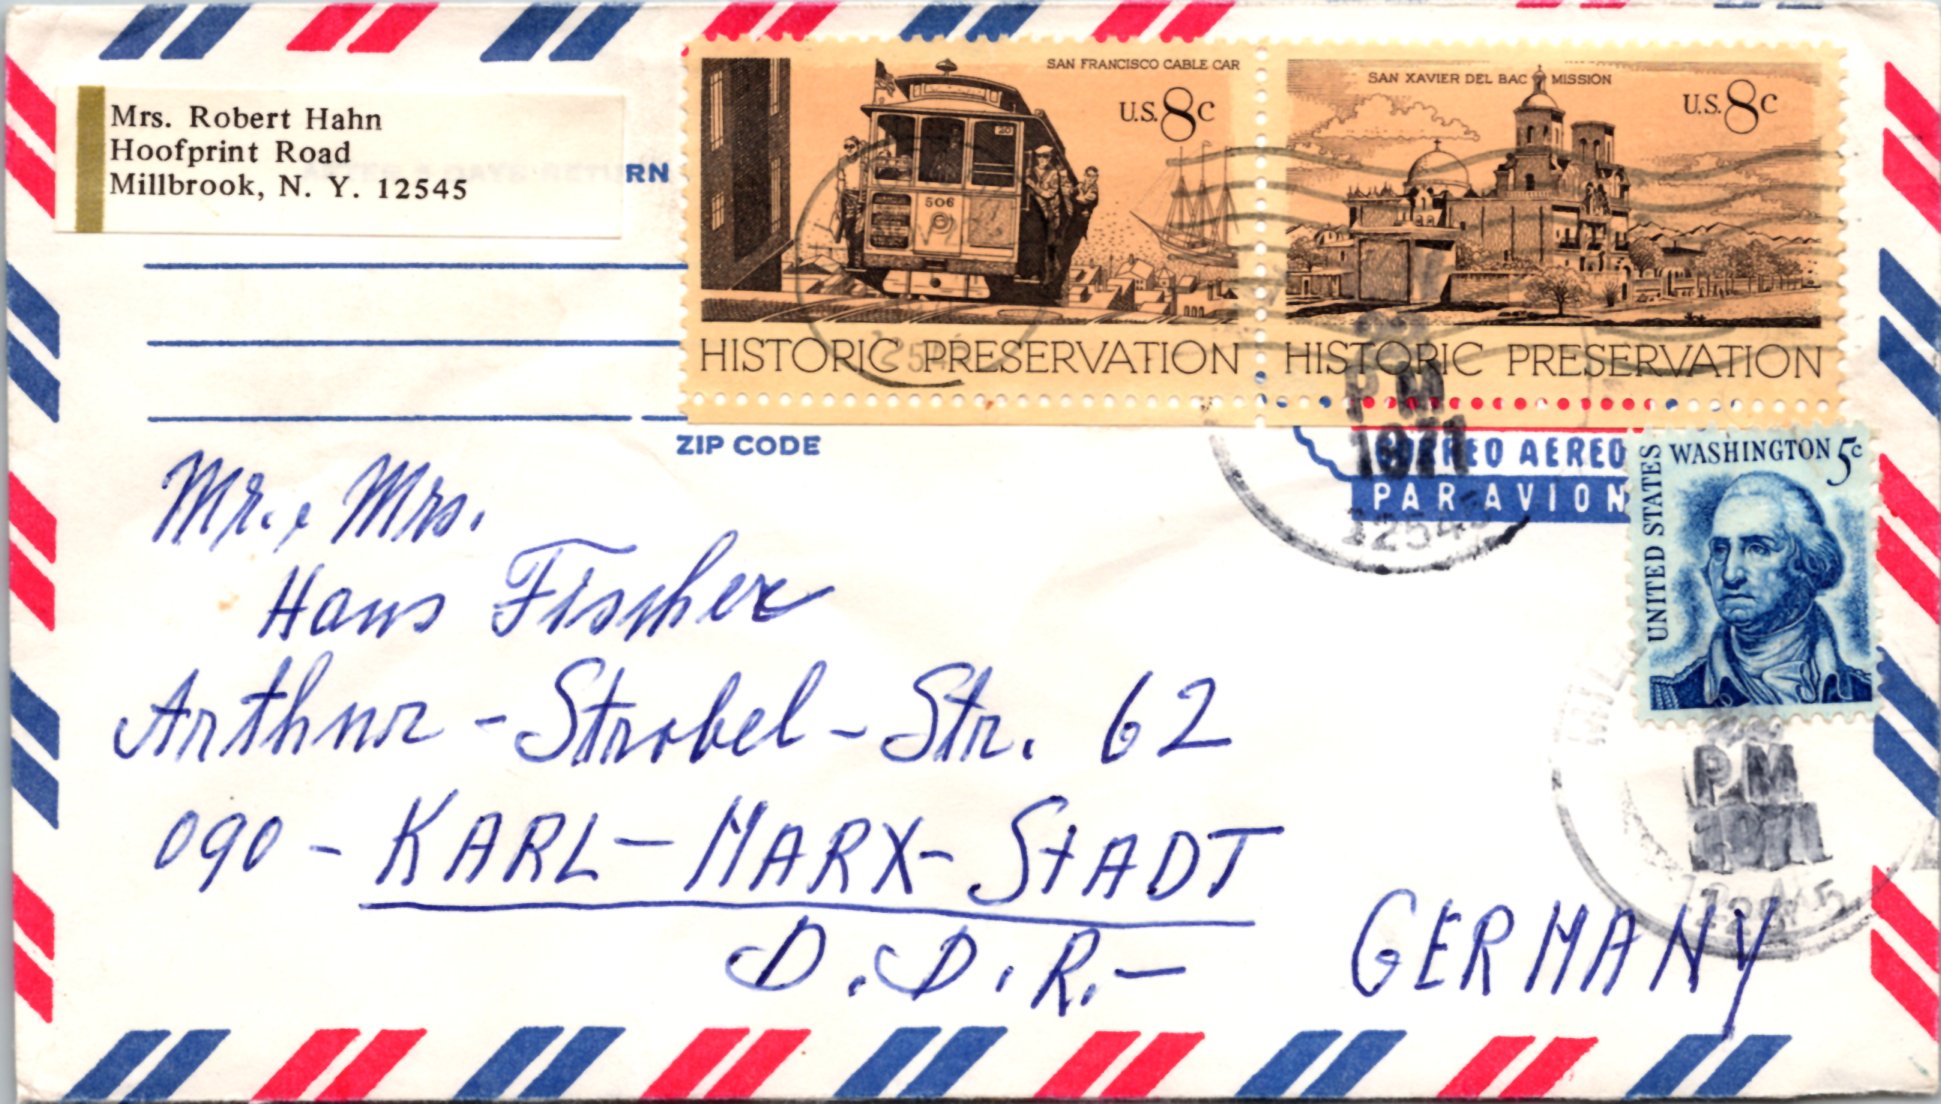 Mrs. Robert Hahn
Hoofprint Road
Millbrook, N. Y. 12545
RN
SAN FRANCISCO CABLE CAR
U.S. 8c
506
HISTORIC PRESERVATION
SAN XAVIER DEL BAC MISSION
U.S. 8c
HISTORIC PRESERVATION
PM
1971
12545
ZIP CODE
CORREO AEREO
PAR AVION
UNITED STATES
WASHINGTON 5c
Mr. & Mrs.
Hans Fischer
Arthur-Strobel-Str. 62
090 - KARL-MARX-STADT
D.D.R.-
GERMANY
PM
1971
12545